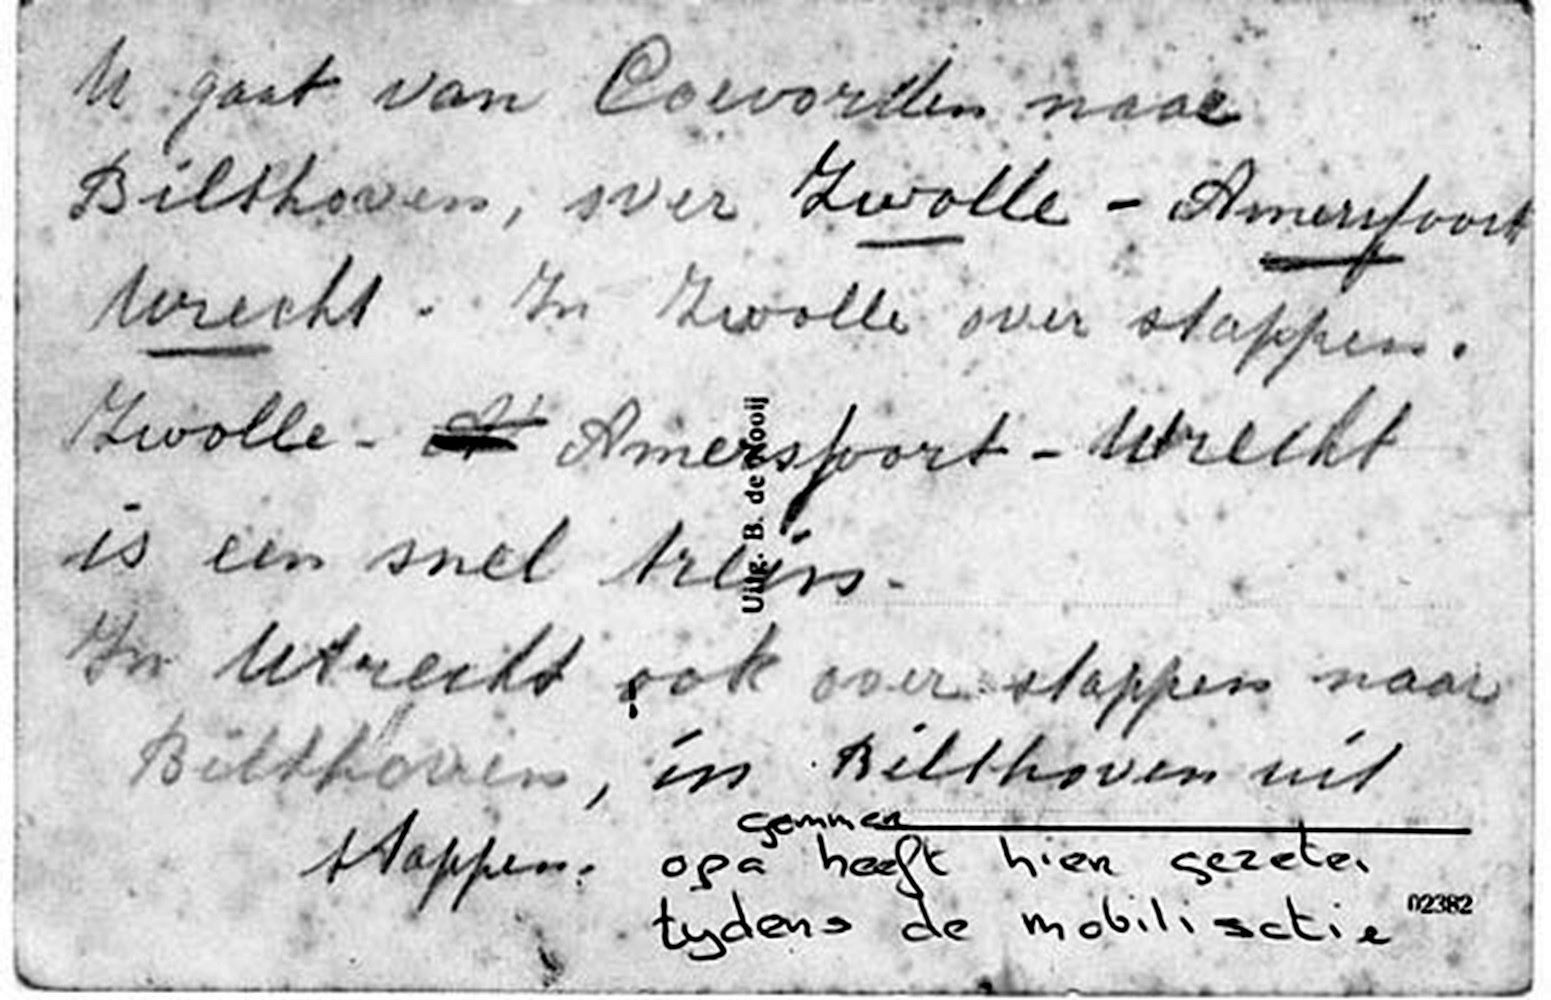 U gaat van Coevorden naar
Bilthoven, over Zwolle - Amersfoort
Utrecht. In Zwolle over stappen.
Zwolle - Amersfoort - Utrecht
is een snel trein.
In Utrecht ook over stappen naar
Bilthoven, in Bilthoven uit
stappen.
Gemmer
opa heeft hier gezeten
tydens de mobilisatie
Uitg. B. de Nooij
02382